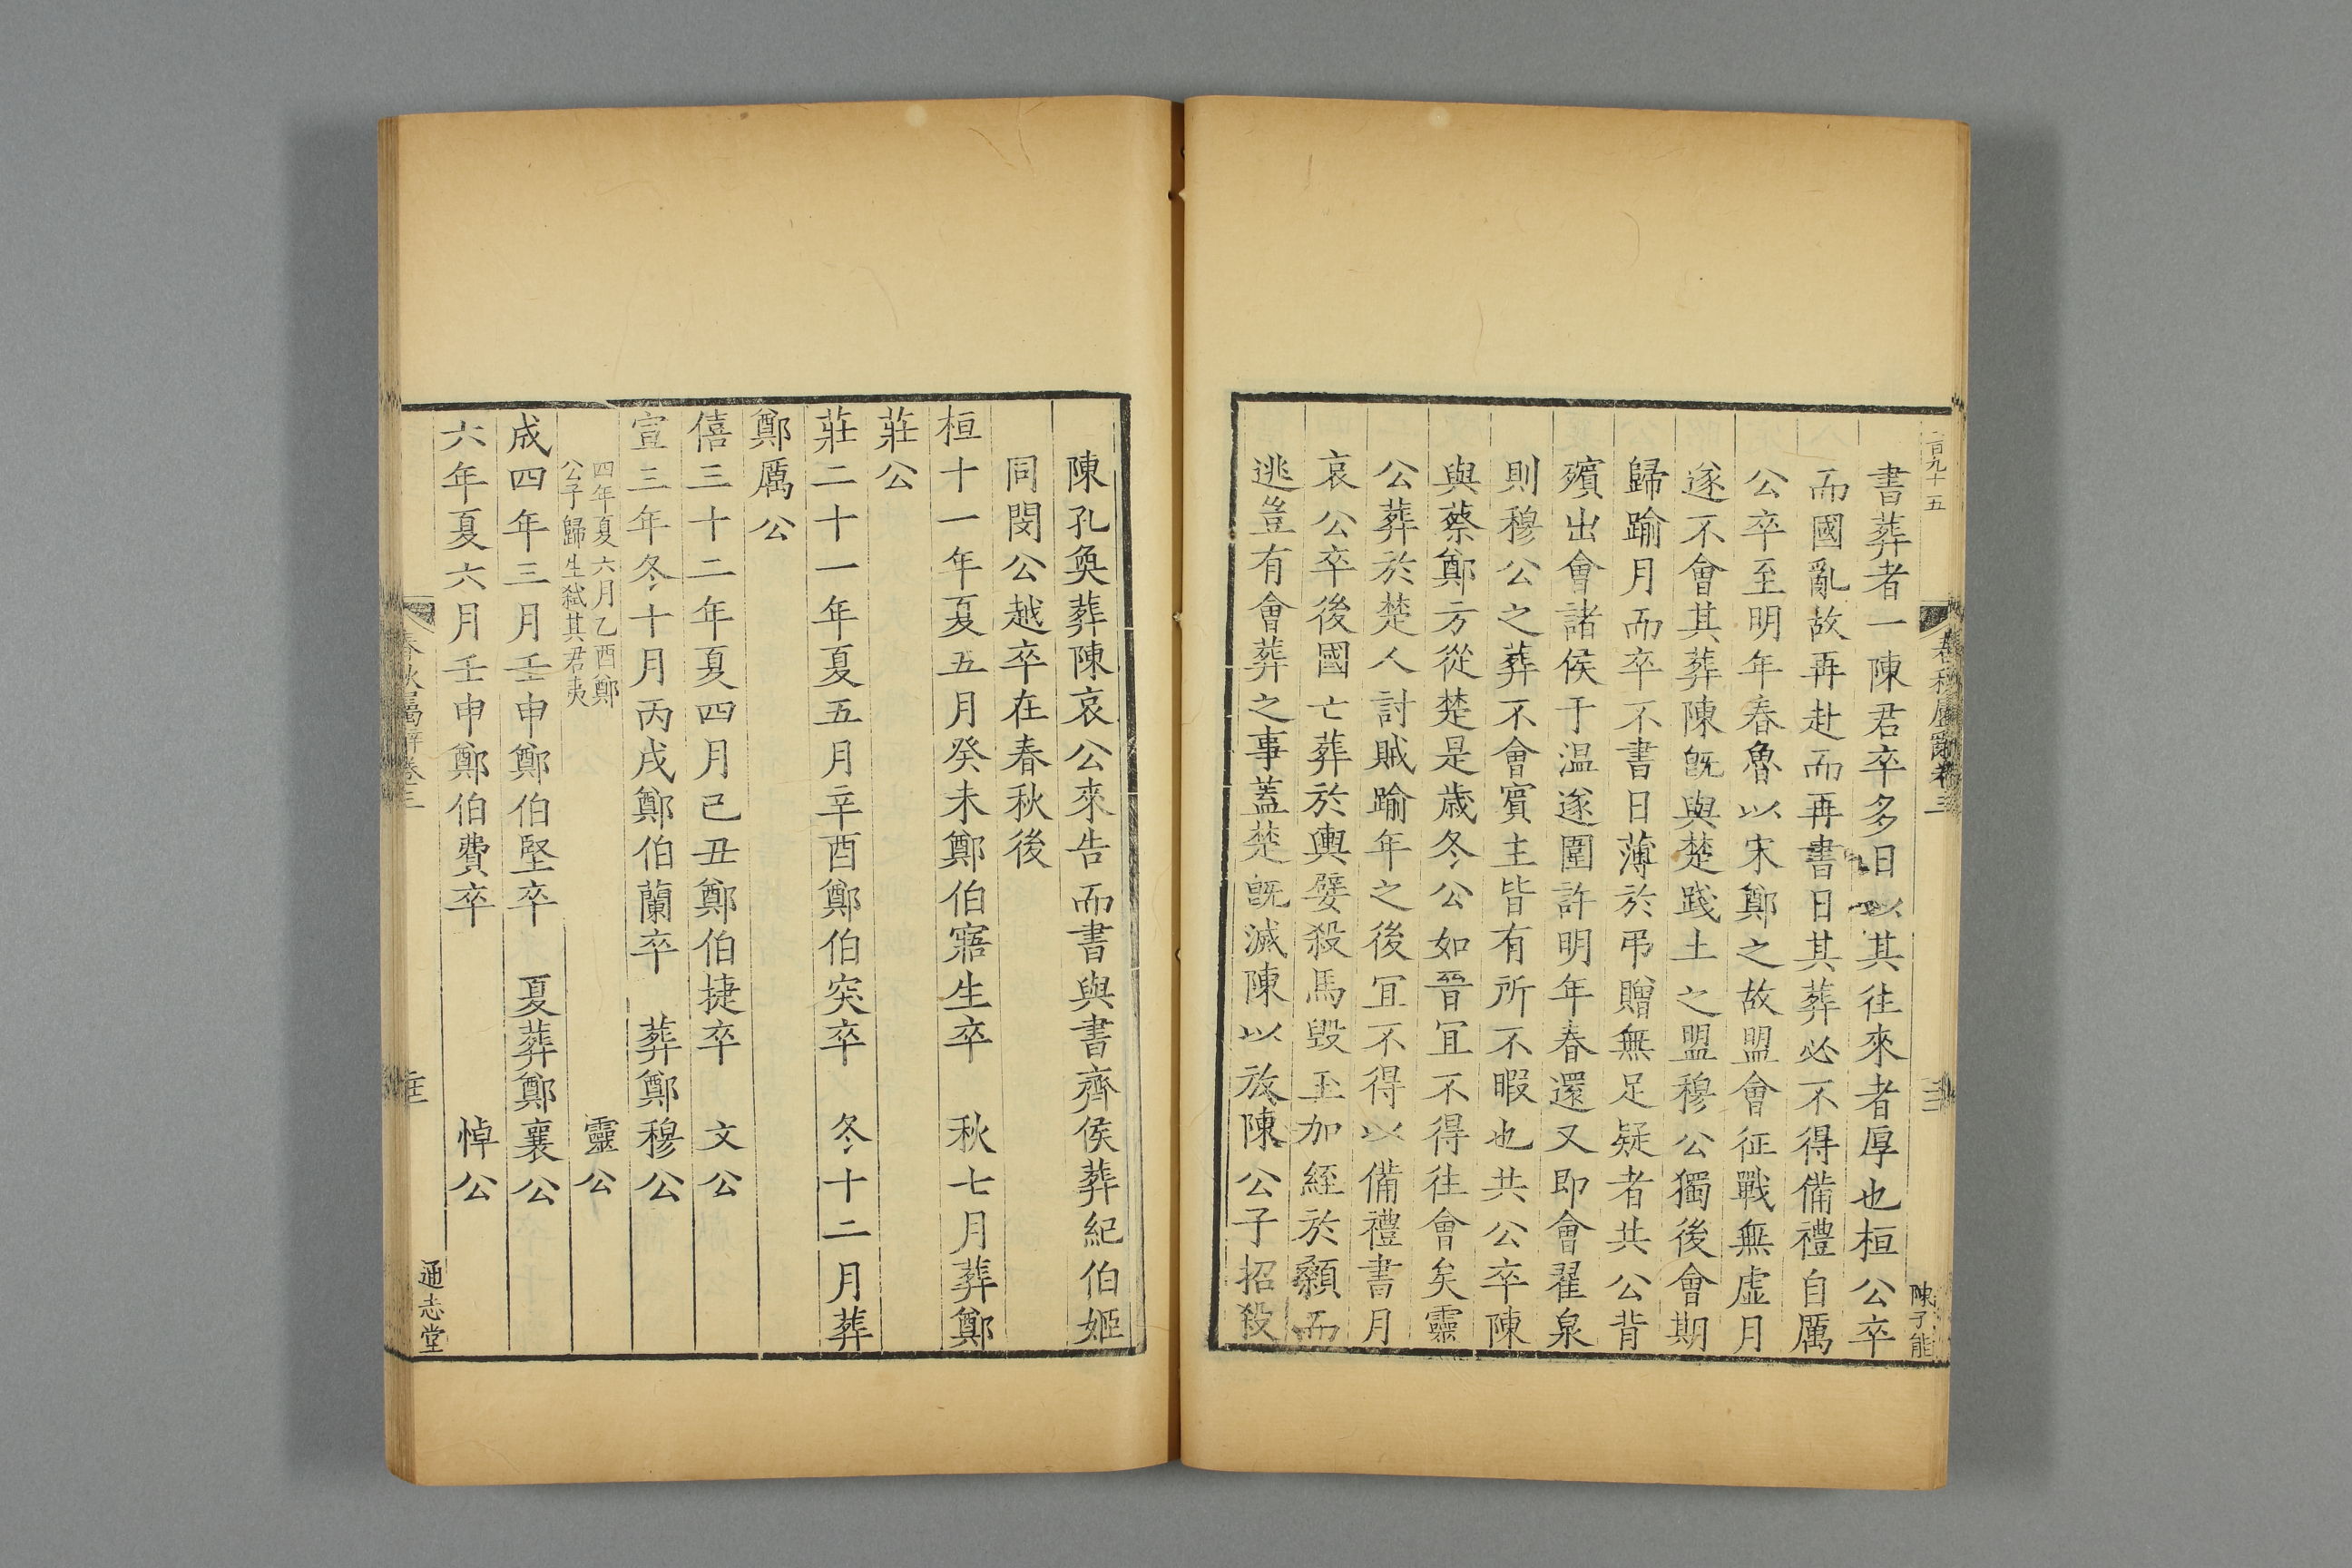 二百九十五
春秋屬辭卷三
陳子能
書葬者一陳君卒多日以其往來者厚也桓公卒
而國亂故再赴而再書日其葬必不得備禮自厲
公卒至明年春魯以宋鄭之故盟會征戰無虛月
遂不會其葬陳旣與楚踐土之盟穆公獨後會期
歸踰月而卒不書日薄於弔贈無足疑者共公背
殯出會諸侯于温遂圍許明年春還又即會翟泉
則穆公之葬不會賓主皆有所不暇也共公卒陳
與蔡鄭方從楚是歲冬公如晉冝不得往會矣靈
公葬於楚人討賊踰年之後冝不得以備禮書月
哀公卒後國亡葬於輿嬖殺馬毀玉加絰於顙而
逃豈有會葬之事蓋楚旣滅陳以放陳公子招殺
陳孔奐葬陳哀公來告而書與書齊侯葬紀伯姬
同閔公越卒在春秋後
桓十一年夏五月癸未鄭伯寤生卒　秋七月葬鄭
莊公
莊二十一年夏五月辛酉鄭伯突卒　冬十二月葬
鄭厲公
僖三十二年夏四月己丑鄭伯捷卒　文公
宣三年冬十月丙戌鄭伯蘭卒　葬鄭穆公
四年夏六月乙酉鄭
公子歸生弒其君夷　靈公
成四年三月壬申鄭伯堅卒　夏葬鄭襄公
六年夏六月壬申鄭伯費卒　悼公
春秋屬辭卷三
通志堂